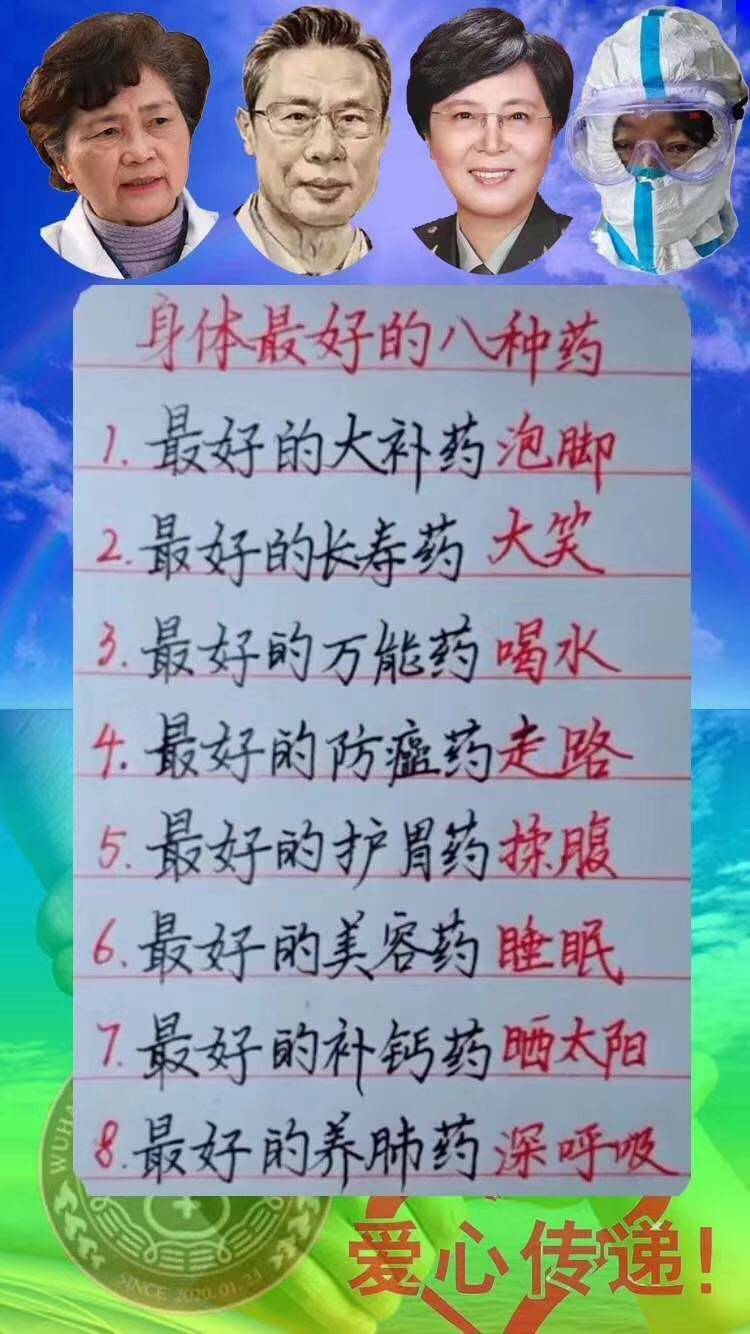 身体最好的八种药
1. 最好的大补药泡脚
2. 最好的长寿药 大笑
3. 最好的万能药喝水
4. 最好的防癌药走路
5. 最好的护胃药揉腹
6. 最好的美容药睡眠
7. 最好的补钙药晒太阳
8. 最好的养肺药深呼吸
WUHA
SINCE 2020.01.23
爱心传递!